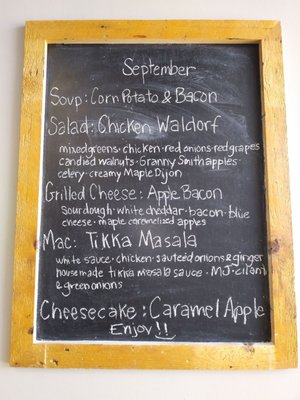 September
Soup: Corn Potato & Bacon
Salad: Chicken Waldorf
mixed greens · chicken · red onions · red grapes
candied walnuts · Granny Smith apples ·
celery · creamy Maple Dijon
Grilled Cheese: Apple Bacon
Sourdough · white cheddar · bacon · blue
cheese · maple caramelized apples
Mac: Tikka Masala
white sauce · chicken · sauteed onions & ginger
housemade tikka masala sauce · MJ · cilantro
& green onions
Cheesecake: Caramel Apple
Enjoy!!